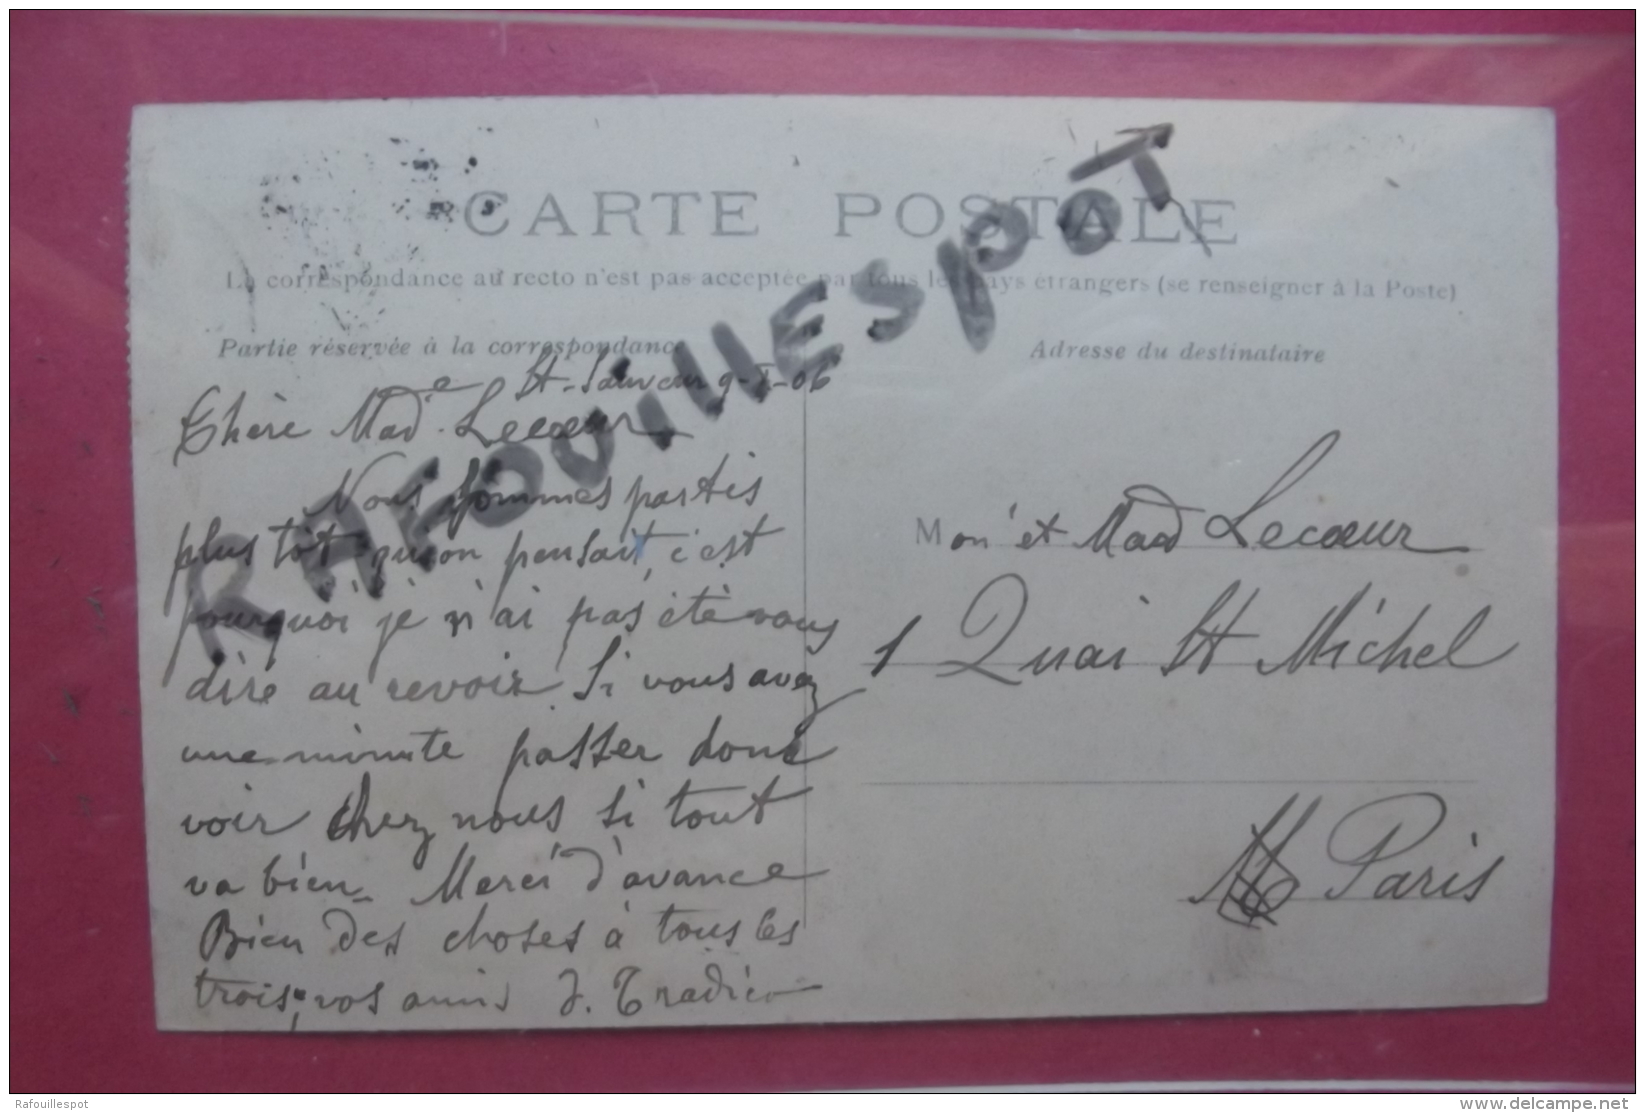 CARTE POSTALE
La correspondance au recto n'est pas acceptée par tous les pays étrangers (se renseigner à la Poste)
Partie réservée à la correspondance
St-Sauveur 9-X-06
Chère Made Lecœur
Nous sommes partis
plus tôt qu'on pensait, c'est
pourquoi je n'ai pas été vous
dire au revoir Si vous avez
une minute passer donc
voir chez nous si tout
va bien. Merci d'avance
Bien des choses à tous les
trois, vos amis J.
Adresse du destinataire
Mon et Mad Lecœur
1 Quai St Michel
Paris
RAFOUILLESPOT
Rafouillespot
www.delcampe.net